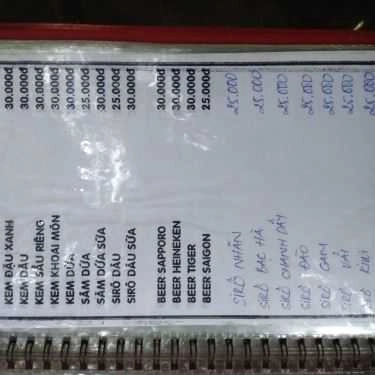 KEM ĐẬU XANH 30.000đ
KEM DÂU 30.000đ
KEM SẦU RIÊNG 30.000đ
KEM KHOAI MÔN 30.000đ
KEM DỪA 30.000đ
SÂM DỨA 25.000đ
SÂM DỨA SỮA 30.000đ
SIRÔ DÂU 25.000đ
SIRÔ DÂU SỮA 30.000đ
BEER SAPPORO 30.000đ
BEER HEINEKEN 30.000đ
BEER TIGER 30.000đ
BEER SAIGON 25.000đ
SIRÔ NHÃN 25.000
SIRÔ BẠC HÀ 25.000
SIRÔ CHANH DÂY 25.000
SIRÔ ĐÀO 25.000
SIRÔ CAM 25.000
SIRÔ VẢI 25.000
SIRÔ KIWI 25.000